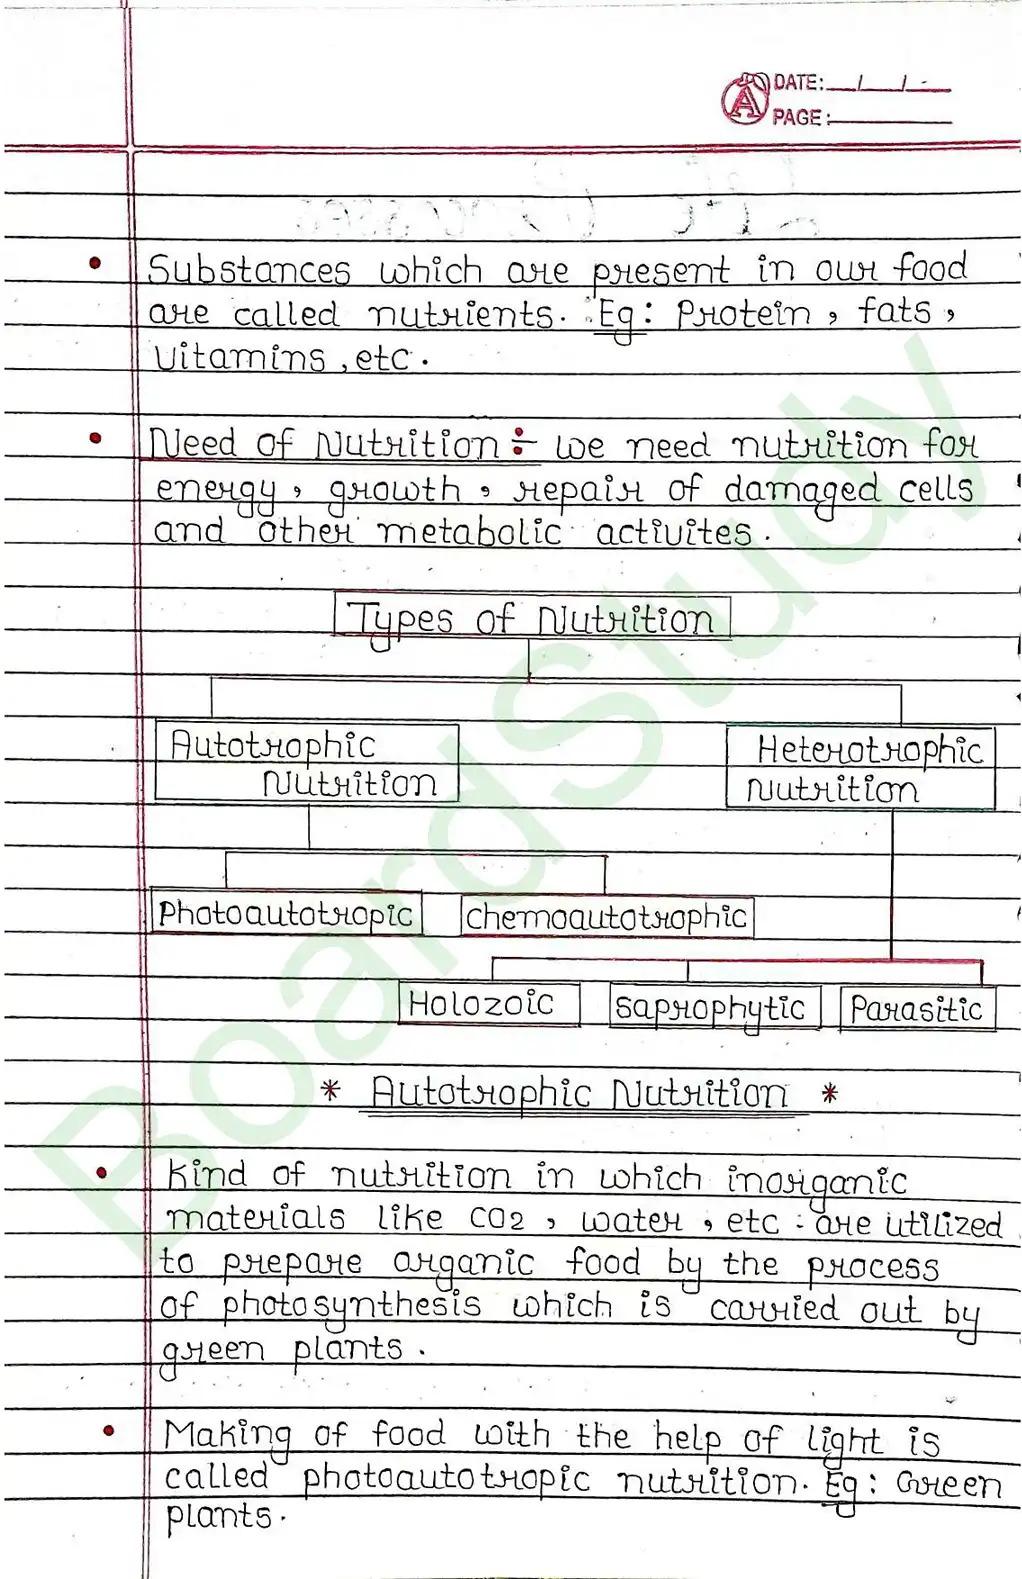 DATE: / /
PAGE:
Substances which are present in our food
are called nutrients. Eg: Protein, fats,
vitamins, etc.
Need of Nutrition÷ we need nutrition for
energy, growth, repair of damaged cells
and other metabolic activites.
Types of Nutrition
Autotrophic Heterotrophic
Nutrition Nutrition
Photoautotropic chemoautotrophic
Holozoic saprophytic Parasitic
* Autotrophic Nutrition *
Kind of nutrition in which inorganic
materials like CO2, water, etc. are utilized
to prepare organic food by the process
of photosynthesis which is carried out by
green plants.
Making of food with the help of light is
called photoautotropic nutrition. Eg: Green
plants.
BoardStudy